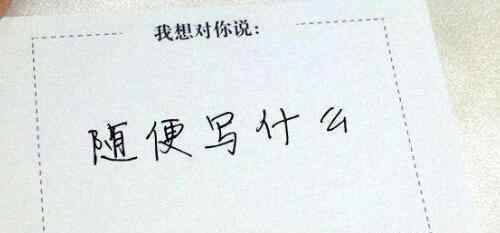 我想对你说:
随便写什么